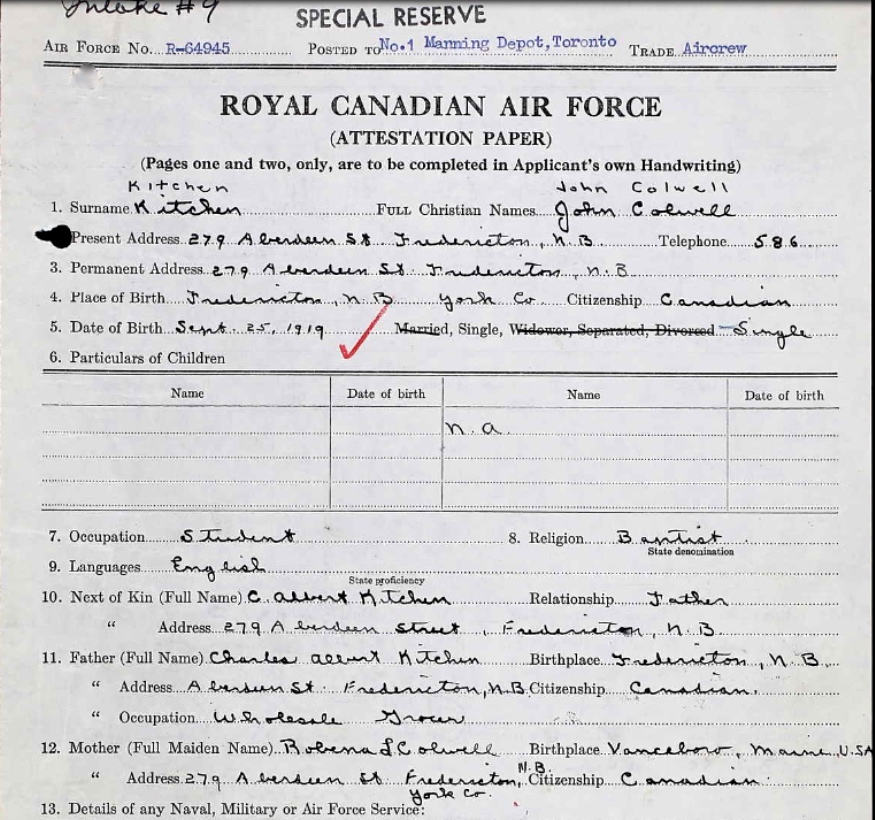 Intake #9
SPECIAL RESERVE
AIR FORCE No. R-64945 POSTED TO No.1 Manning Depot, Toronto TRADE Aircrew
ROYAL CANADIAN AIR FORCE
(ATTESTATION PAPER)
(Pages one and two, only, are to be completed in Applicant's own Handwriting)
Kitchen John Colwell
1. Surname Kitchen FULL Christian Names John Colwell
Present Address 279 Aberdeen St. Fredericton, N.B Telephone 586
3. Permanent Address 279 Aberdeen St. Fredericton, N.B.
4. Place of Birth Fredericton, N.B York Co. Citizenship Canadian
5. Date of Birth Sept. 25, 1919 Married, Single, Widower, Separated, Divorced Single
6. Particulars of Children
Name Date of birth Name Date of birth
n.a.
7. Occupation Student 8. Religion Baptist
State denomination
9. Languages English
State proficiency
10. Next of Kin (Full Name) C. Albert Kitchen Relationship Father
" Address 279 Aberdeen Street, Fredericton, N.B.
11. Father (Full Name) Charles Albert Kitchen Birthplace Fredericton, N.B.
" Address Aberdeen St. Fredericton, N.B. Citizenship Canadian.
" Occupation Wholesale Grocer
12. Mother (Full Maiden Name) Colwell Birthplace Vanceboro, Maine, U.SA
" Address 279 Aberdeen St Fredericton, N.B. Citizenship Canadian
York Co.
13. Details of any Naval, Military or Air Force Service: